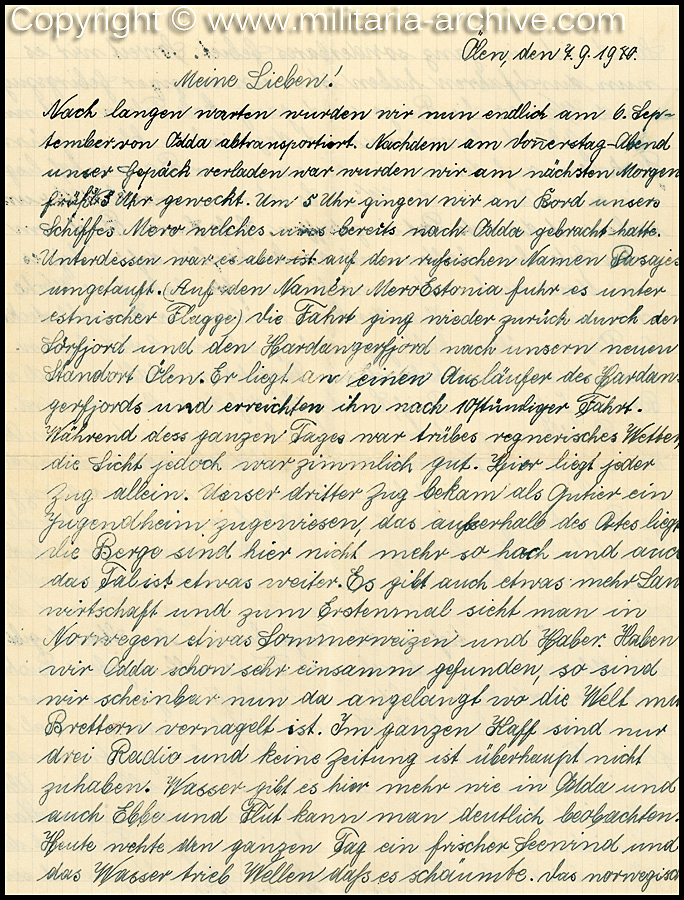 Copyright © www.militaria-archive.com
Ölen, den 7.9.1940.
Meine Lieben!
Nach langen warten wurden wir nun endlich am 6. Sep-
tember von Odda abtransportiert. Nachdem am Donnerstag-Abend
unser Gepäck verladen war wurden wir am nächsten Morgen
früh 3 Uhr geweckt. Um 5 Uhr gingen wir an Bord unsers
Schiffes Mero welches uns bereits nach Odda gebracht hatte.
Unterdessen war es aber ist auf den rußischen Namen Pasajes
umgetauft. (Auf den Namen Mero Estonia fuhr es unter
estnischer Flagge) die Fahrt ging wieder zurück durch den
Sörfjord und den Hardangerfjord nach unsern neuen
Standort Ölen. Er liegt an einen Ausläufer des Hardan-
gerfjords und erreichten ihn nach 10stündiger Fahrt.
Während dess ganzen Tages war trübes regnerisches Wetter,
die Sicht jedoch war zimmlich gut. Hier liegt jeder
Zug allein. Unser dritter Zug bekam als Qutier ein
Jugendheim zugewiesen, das außerhalb des Ortes liegt
die Berge sind hier nicht mehr so hoch und auch
das Tal ist etwas weiter. Es gibt auch etwas mehr Lan
wirtschaft und zum Erstenmal sieht man in
Norwegen etwas Sommerweizen und Haber. Haben
wir Odda schon sehr einsamm gefunden, so sind
wir scheinbar nun da angelangt wo die Welt mit
Brettern vernagelt ist. Im ganzen Kaff sind nur
drei Radio und keine Zeitung ist überhaupt nicht
zuhaben. Wasser gibt es hier mehr wie in Odda und
auch Ebbe und Flut kann man deutlich beobachten.
Heute wehte den ganzen Tag ein frischer Seewind und
das Wasser trieb Wellen daß es schäumte. Das norwegisch